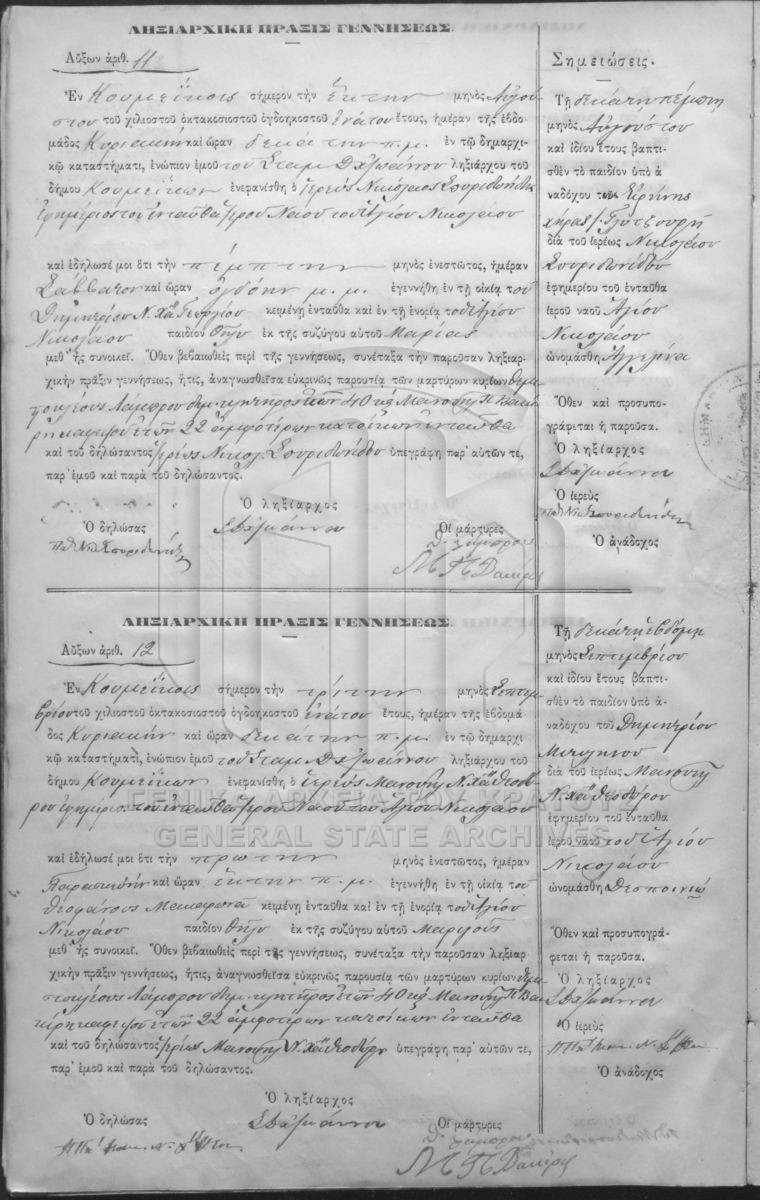 ΛΗΞΙΑΡΧΙΚΗ ΠΡΑΞΙΣ ΓΕΝΝΗΣΕΩΣ.
Αὔξων ἀριθ. 11
Ἐν Κουμεΐκοις σήμερον τὴν ἕκτην μηνὸς Αὐγού-
στου τοῦ χιλιοστοῦ ὀκτακοσιοστοῦ ὀγδοηκοστοῦ ἐνάτου ἔτους, ἡμέραν τῆς ἑβδο-
μάδος Κυριακὴν καὶ ὥραν δεκάτην π.μ. ἐν τῷ δημαρχι-
κῷ καταστήματι, ἐνώπιον ἐμοῦ τοῦ Σταμ. ληξιάρχου τοῦ
δήμου Κουμεΐκων ἐνεφανίσθη ὁ ἱερεὺς Νικόλαος Σπυριδωνίδης
ἐφημέριος τοῦ ἐνταῦθα ἱεροῦ Ναοῦ τοῦ Ἁγίου Νικολάου
καὶ ἐδήλωσέ μοι ὅτι τὴν πέμπτην μηνὸς ἐνεστῶτος, ἡμέραν
Σάββατον καὶ ὥραν ὀγδόην μ.μ. ἐγεννήθη ἐν τῇ οἰκίᾳ τοῦ
Δημητρίου Ν. Χ Γεωργίου κειμένῃ ἐνταῦθα καὶ ἐν τῇ ἐνορίᾳ τοῦ Ἁγίου
Νικολάου παιδίον θῆλυ ἐκ τῆς συζύγου αὐτοῦ Μαρίας
μεθ' ἧς συνοικεῖ. Ὅθεν βεβαιωθεὶς περὶ τῆς γεννήσεως, συνέταξα τὴν παροῦσαν ληξιαρ-
χικὴν πρᾶξιν γεννήσεως, ἥτις, ἀναγνωσθεῖσα εὐκρινῶς παρουσίᾳ τῶν μαρτύρων κυρίων Θεμι-
στοκλέους Λάμπρου δημ. κλητῆρος ἐτῶν 40 καὶ Μανουὴλ Π. Βακί-
ρη ἐτῶν 22 ἀμφοτέρων κατοίκων ἐνταῦθα
καὶ τοῦ δηλώσαντος ἱερέως Νικολ. Σπυριδωνίδου ὑπεγράφη παρ' αὐτῶν τε,
παρ' ἐμοῦ καὶ παρὰ τοῦ δηλώσαντος.
Ὁ ληξίαρχος
Ὁ δηλώσας
Οἱ μάρτυρες
Θ. Λάμπρου
Μ Π Βακίρης
Σημειώσεις.
Τῇ δεκάτῃ πέμπτῃ
μηνὸς Αὐγούστου
καὶ ἰδίου ἔτους βαπτι-
σθὲν τὸ παιδίον ὑπὸ ἀ-
ναδόχου τῆς Εἰρήνης
χήρας
διὰ τοῦ ἱερέως Νικολάου
Σπυριδωνίδου
ἐφημερίου τοῦ ἐνταῦθα
ἱεροῦ ναοῦ Ἁγίου
Νικολάου
ὠνομάσθη Ἀγγελίνα
Ὅθεν καὶ προσυπο-
γράφεται ἡ παροῦσα.
Ὁ ληξίαρχος
Ὁ ἱερεὺς
Ὁ ἀνάδοχος
ΛΗΞΙΑΡΧΙΚΗ ΠΡΑΞΙΣ ΓΕΝΝΗΣΕΩΣ
Αὔξων ἀριθ. 12
Ἐν Κουμεΐκοις σήμερον τὴν τρίτην μηνὸς Σεπτεμ-
βρίου τοῦ χιλιοστοῦ ὀκτακοσιοστοῦ ὀγδοηκοστοῦ ἐνάτου ἔτους, ἡμέραν τῆς ἑβδομά-
δος Κυριακὴν καὶ ὥραν δεκάτην π.μ. ἐν τῷ δημαρχι-
κῷ καταστήματι, ἐνώπιον ἐμοῦ τοῦ Σταμ. ληξιάρχου τοῦ
δήμου Κουμεΐκων ἐνεφανίσθη ὁ ἱερεὺς Μανουὴλ Ν. Χ Θεοδώ-
ρου ἐφημέριος τοῦ ἐνταῦθα ἱεροῦ Ναοῦ τοῦ Ἁγίου Νικολάου
ΓΕΝΙΚΑ ΑΡΧΕΙΑ ΤΟΥ ΚΡΑΤΟΥΣ
GENERAL STATE ARCHIVES
καὶ ἐδήλωσέ μοι ὅτι τὴν πρώτην μηνὸς ἐνεστῶτος, ἡμέραν
Παρασκευὴν καὶ ὥραν ἕκτην π.μ. ἐγεννήθη ἐν τῇ οἰκίᾳ τοῦ
Θεοφάνους κειμένῃ ἐνταῦθα καὶ ἐν τῇ ἐνορίᾳ τοῦ Ἁγίου
Νικολάου παιδίον θῆλυ ἐκ τῆς συζύγου αὐτοῦ Μαριγοῦς
μεθ' ἧς συνοικεῖ. Ὅθεν βεβαιωθεὶς περὶ τῆς γεννήσεως, συνέταξα τὴν παροῦσαν ληξιαρ-
χικὴν πρᾶξιν γεννήσεως, ἥτις, ἀναγνωσθεῖσα εὐκρινῶς παρουσίᾳ τῶν μαρτύρων κυρίων Θεμι-
στοκλέους Λάμπρου δημ. κλητῆρος ἐτῶν 40 καὶ Μανουὴλ Π. Βα-
κίρη ἐτῶν 22 ἀμφοτέρων κατοίκων ἐνταῦθα
καὶ τοῦ δηλώσαντος ἱερέως Μανουὴλ Ν. Χ Θεοδώρου ὑπεγράφη παρ' αὐτῶν τε,
παρ' ἐμοῦ καὶ παρὰ τοῦ δηλώσαντος.
Ὁ ληξίαρχος
Ὁ δηλώσας
Οἱ μάρτυρες
Θ. Λάμπρου
Μ Π Βακίρης
Τῇ δεκάτῃ ἑβδόμῃ
μηνὸς Σεπτεμβρίου
καὶ ἰδίου ἔτους βαπτι-
σθὲν τὸ παιδίον ὑπὸ ἀ-
ναδόχου τοῦ Δημητρίου
διὰ τοῦ ἱερέως Μανουὴλ
Ν. Χ Θεοδώρου
ἐφημερίου τοῦ ἐνταῦθα
ἱεροῦ ναοῦ τοῦ Ἁγίου
Νικολάου
ὠνομάσθη Δεσποινιὼ
Ὅθεν καὶ προσυπογρά-
φεται ἡ παροῦσα.
Ὁ ληξίαρχος
Ὁ ἱερεὺς
Ὁ ἀνάδοχος